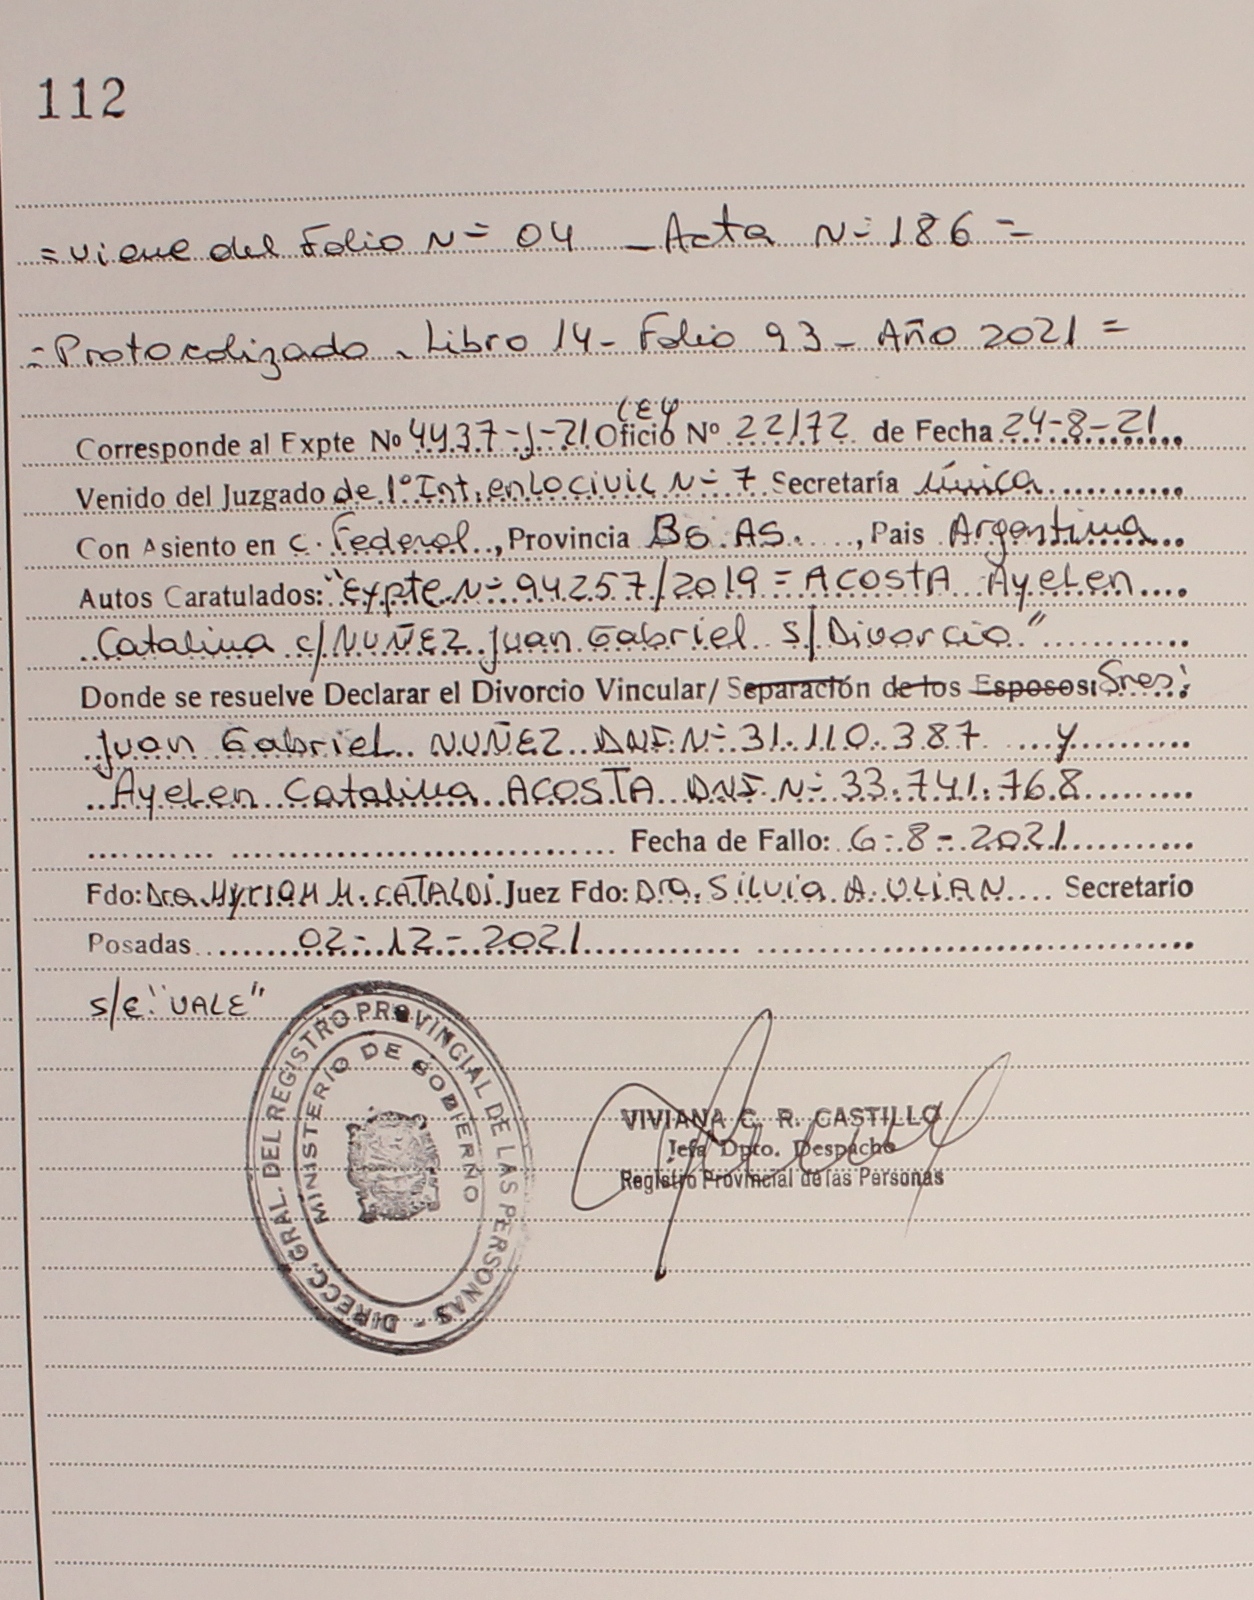 112
= viene del Folio N= 04 - Acta N= 186 =
= Protocolizado - Libro 14 - Folio 93 - Año 2021 =
LEY
Corresponde al Expte Nº 4437-J-21 Oficio Nº 22172 de Fecha 24-8-21
Venido del Juzgado de 1º Int. en lo civil N= 7 Secretaría única
Con Asiento en C. Federal, Provincia Bs. AS., Pais Argentina
Autos Caratulados: "Expte N= 94257/2019 = ACOSTA Ayelen
Catalina c/ NUÑEZ Juan Gabriel s/ Divorcio"
Donde se resuelve Declarar el Divorcio Vincular/ Separación de los Esposos: Sres:
Juan Gabriel NUÑEZ DNI N= 31.110.387 y
Ayelen Catalina ACOSTA DNI N= 33.741.768
Fecha de Fallo: 6-8-2021
Fdo: Dra. Myriam M. CATALDI Juez Fdo: Dra. Silvia A. ULIAN Secretario
Posadas 02-12-2021
s/e: "VALE"
DIRECC. GRAL. DEL REGISTRO PROVINCIAL DE LAS PERSONAS -
MINISTERIO DE GOBIERNO
VIVIANA C. R. CASTILLO
Jefa Dpto. Despacho
Registro Provincial de las Personas